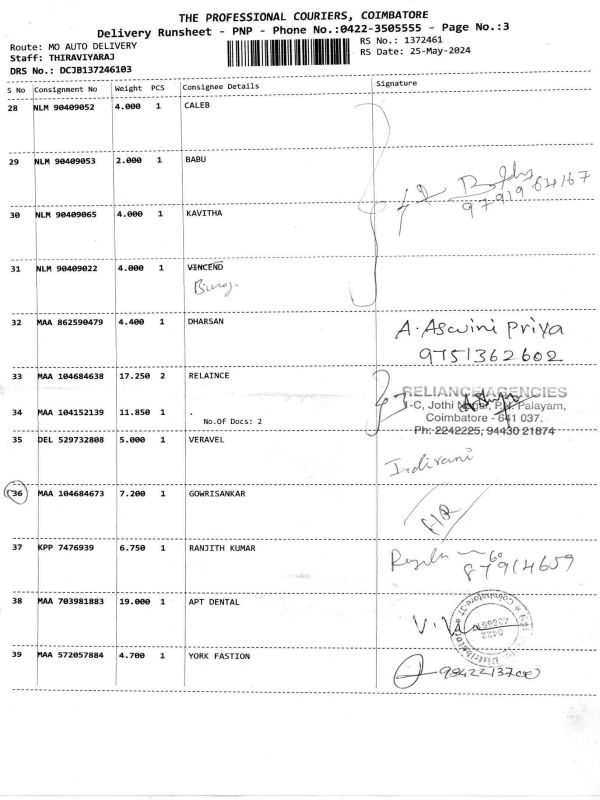 THE PROFESSIONAL COURIERS, COIMBATORE
Delivery Runsheet - PNP - Phone No.:0422-3505555 - Page No.:3
Route: MO AUTO DELIVERY RS No.: 1372461
Staff: THIRAVIYARAJ RS Date: 25-May-2024
DRS No.: DCJB137246103
S No Consignment No Weight PCS Consignee Details Signature
28 NLM 90409052 4.000 1 CALEB
29 NLM 90409053 2.000 1 BABU
9791964167
30 NLM 90409065 4.000 1 KAVITHA
31 NLM 90409022 4.000 1 VINCEND
32 MAA 862590479 4.400 1 DHARSAN A. Aswini Priya
9751362602
33 MAA 104684638 17.250 2 RELAINCE
RELIANCE AGENCIES
1-C, Jothi Nagar, P.N. Palayam,
34 MAA 104152139 11.850 1 .
Coimbatore - 641 037.
No.Of Docs: 2
Ph: 2242225, 94430 21874
35 DEL 529732808 5.000 1 VERAVEL
Indirani
36 MAA 104684673 7.200 1 GOWRISANKAR
HR
37 KPP 7476939 6.750 1 RANJITH KUMAR
38 MAA 703981883 19.000 1 APT DENTAL
39 MAA 572057884 4.700 1 YORK FASTION